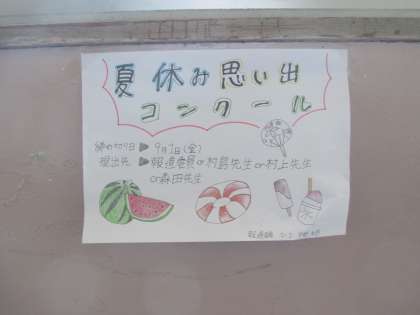 夏休み思い出
コンクール
締め切り日▶9月1日(金)
提出先▶報道委員or村島先生or村上先生
or森田先生
氷